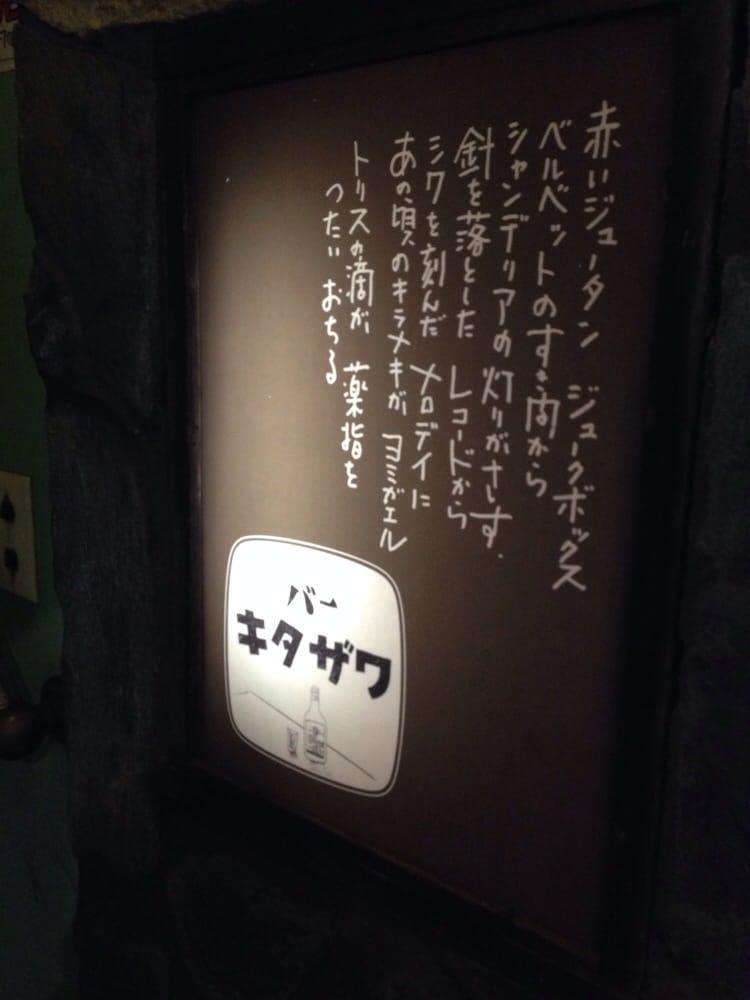 赤いジュータン ジュークボックス
ベルベットのすき間から
シャンデリアの灯りがさす.
針を落とした レコードから
シワを刻んだ メロデイに
あの頃のキラメキが ヨミガエル
トリスの滴が 薬指を
つたい おちる
バー
キタザワ